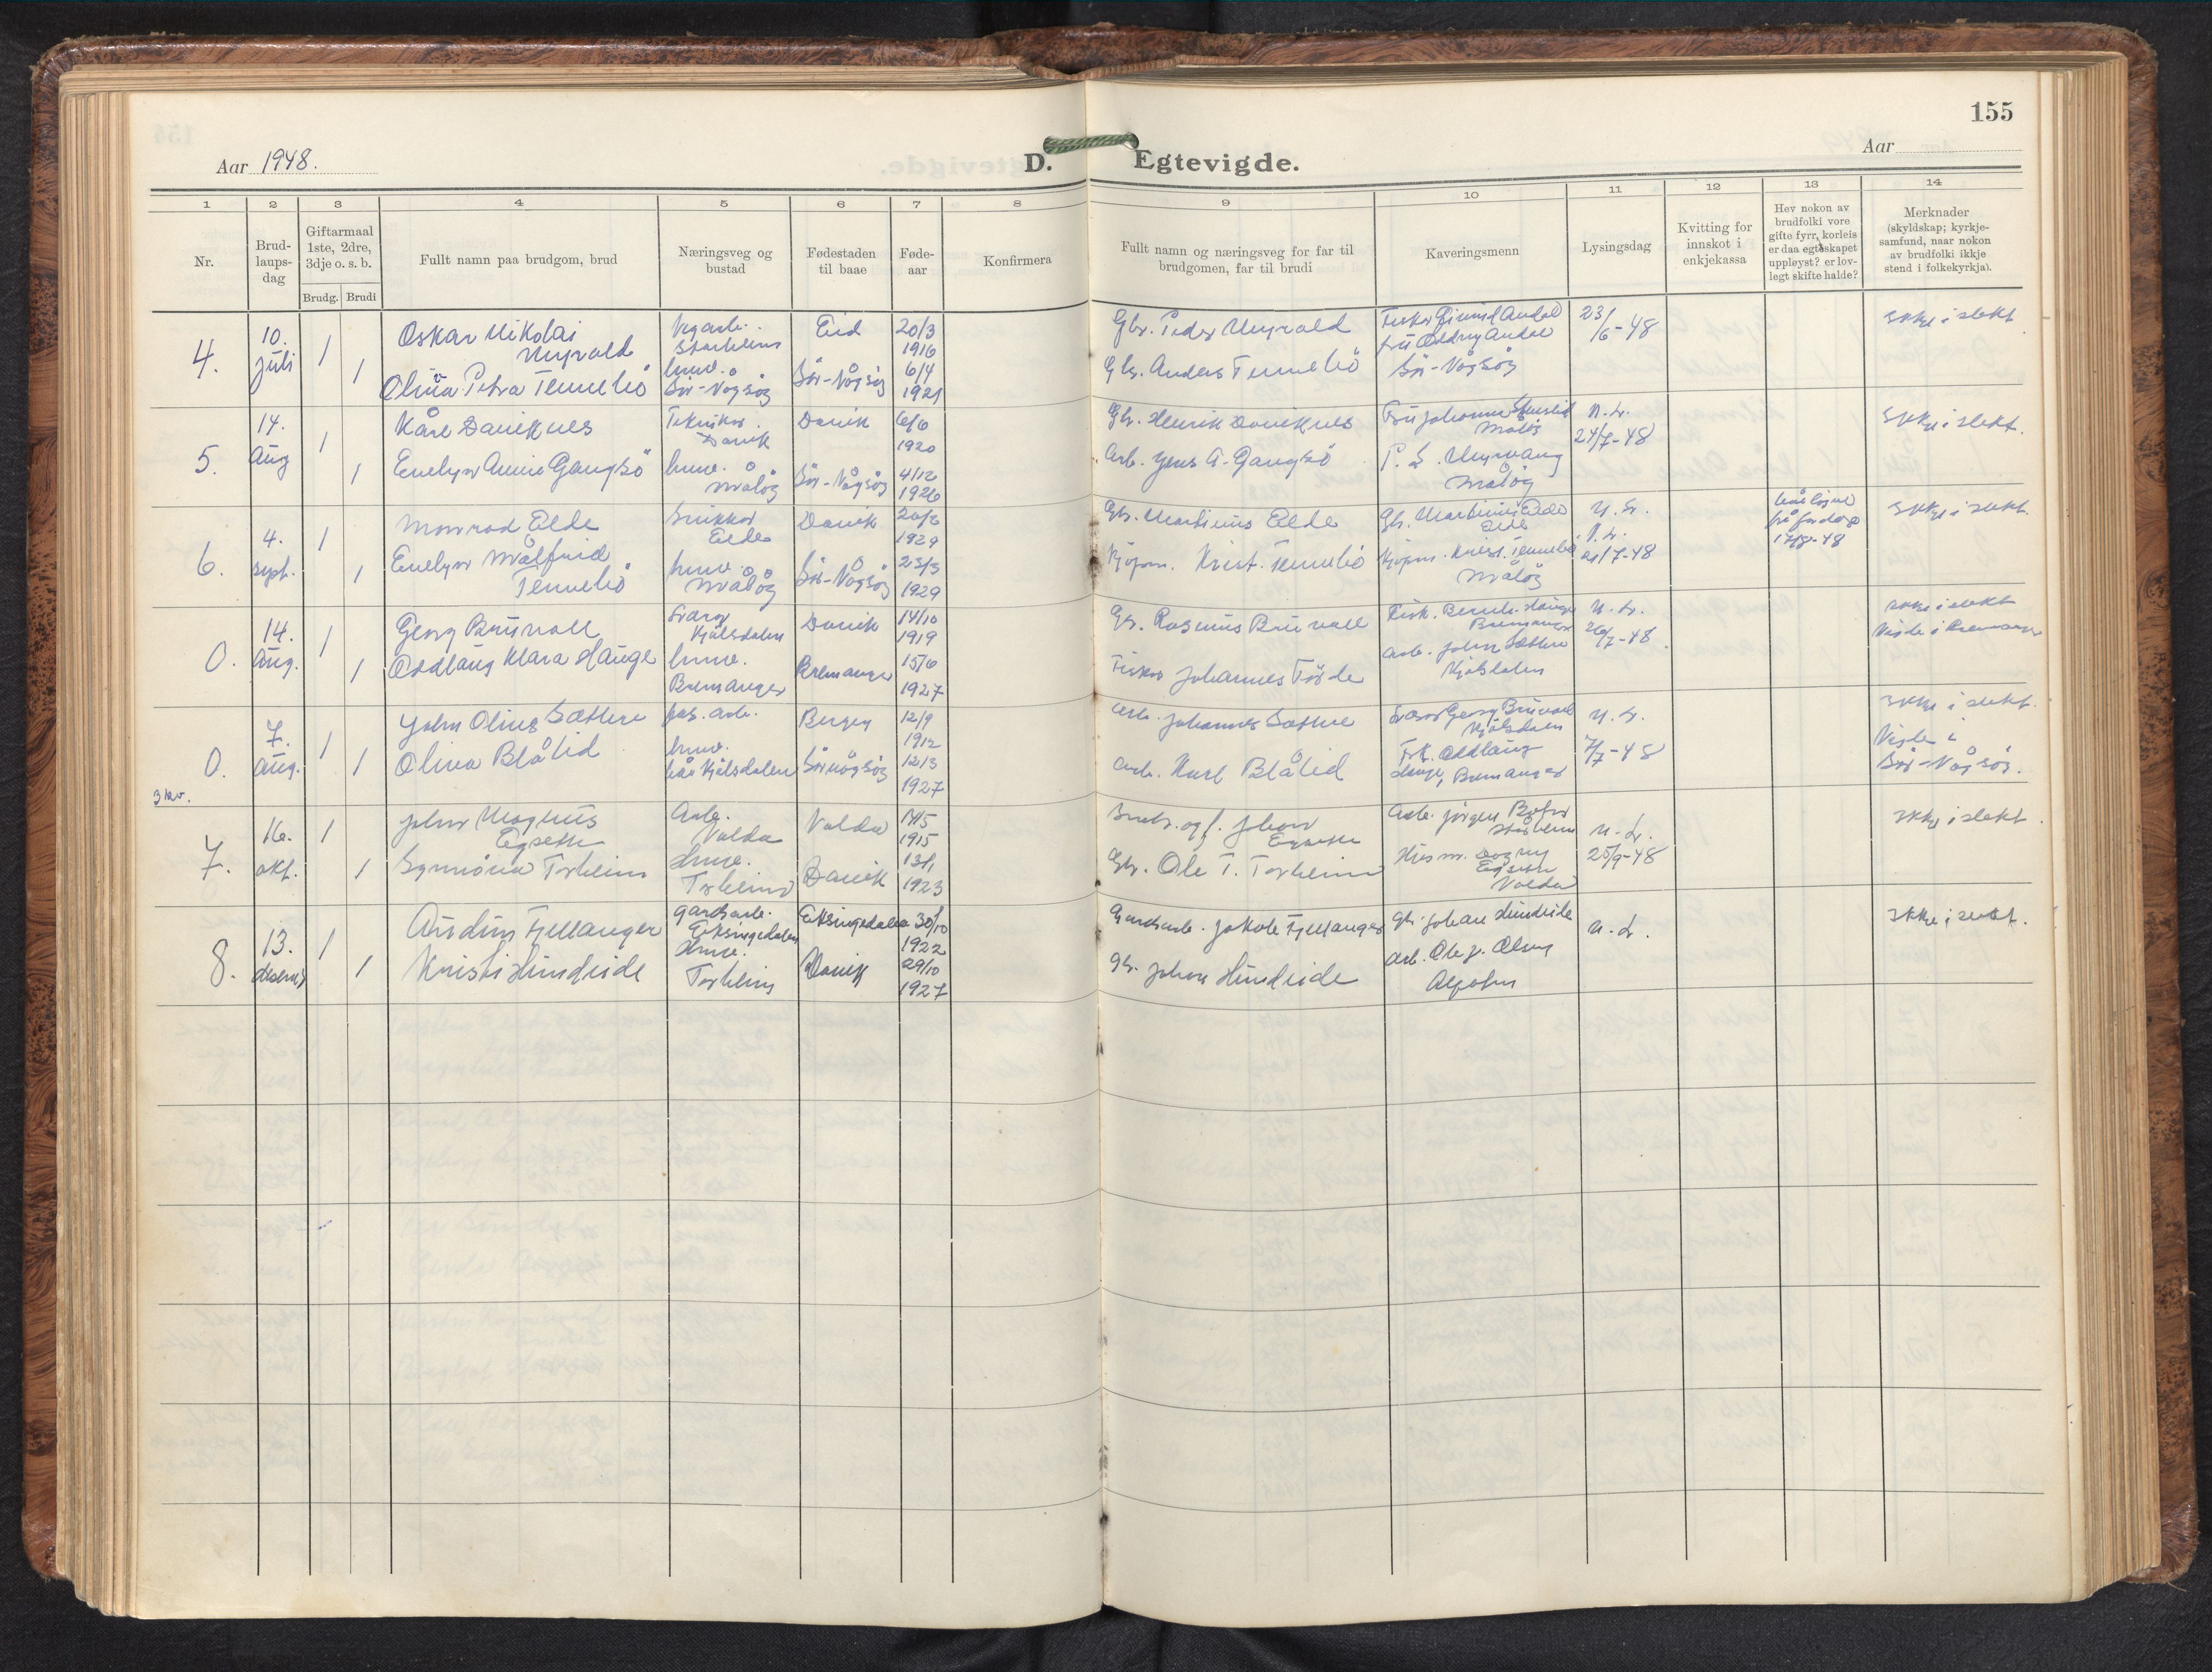 155
Aar 1948.
D. Egtevigde.
Aar
1 2 3 4 5 6 7 8 9 10 11 12 13 14
Nr.
Brud-
laups-
dag
Giftarmaal
1ste, 2dre,
3dje o. s. b.
Brudg. Brudi
Fullt namn paa brudgom, brud
Næringsveg og
bustad
Fødestaden
til baae
Føde-
aar
Konfirmera
Fullt namn og næringsveg for far til
brudgomen, far til brudi
Kaveringsmenn
Lysingsdag
Kvitting for
innskot i
enkjekassa
Hev nokon av
brudfolki vore
gifte fyrr, korleis
er daa egteskapet
uppløyst? er lov-
legt skifte halde?
Merknader
(skyldskap; kyrkje-
samfund, naar nokon
av brudfolki ikkje
stend i folkekyrkja).
4.
10.
juli
1
1
Oskar Nikolai
Myrvold
Olina Petra Tennebö
Vegarb.
Starheim
hmv.
Sör-Vågsöy
Eid
Sör-Vågsöy
20/3
1916
6/4
1921
Gbr. Peder Myrvold
Gbr. Anders Tennebö
Fisker
Sör-Vågsöy
23/
/6-48
Ikkje i slekt
5.
14.
aug
1
1
Kåre Daviknes
Evelyn Annie Gangsö
Tekniker.
Davik
hmv.
Måløy
Davik
Sör-Vågsöy
6/6
1920
4/12
1926
Gbr. Henrik Daviknes
Arb. Jens A. Gangsö
Fru Johanna
Måløy
P. S. Myrvang
Måløy
N. L.
24/7-48
Ikkje i slekt.
6.
4.
sept.
1
1
Monrad Eide
Evelyn Målfrid
Tennebö
Snikker
Eide
hmv.
Måløy
Davik
Sör-Vågsöy
1929
23/3
1929
Gbr. Martinus Eide
Kjöpm. Krist. Tennebö
Gb. Martinus Eide
Eide
Kjöpm. Krist. Tennebö
Måløy
N. L.
N. L.
21/7-48
17/8-48
Ikkje i slekt.
0.
14.
aug.
1
1
Georg Bruvoll
Oddlaug Klara Hauge
Kjölsdalen
hmv.
Bremanger
Davik
Bremanger
14/10
1919
15/6
1927
Gb. Rasmus Bruvoll
Fisker Johannes Förde
Bremanger
arb. John Sættre
Kjölsdalen
N. L.
26/7-48
Ikkje i slekt
Vigde i Bremanger
0.
7.
aug.
1
1
John Olius Sættre
Oliva Blålid
arb.
hmv.
Kjölsdalen
Bergen
Sörvågsöy
12/9
1912
12/3
1927
arb. Johannes Sættre
arb. Karl Blålid
Georg Bruvoll
Kjölsdalen
Frk. Oddlaug
Hauge, Bremanger
N. L.
/7-48
Ikkje i slekt.
Vigde i
Sör-Vågsöy.
3 kv.
7.
16.
okt.
1
1
John Magnus
Egset
Synnöva Torheim
Arb.
Volda
hmv.
Torheim
Volda
Davik
1915
13/1
1923
Johan
Gbr. Ole T. Torheim
Arb. Jörgen
Volda
N. L.
25/9-48
Ikkje i slekt.
8.
13.
desem.
1
1
Audun Fjellanger
Kristi Hundeide
Gardsarb.
Eksingedalen
hmv.
Torheim
Eksingedalen
Davik
30/10
1922
29/10
1927
Gardsarb. Jakob Fjellanger
gb. Johan Hundeide
gb. Johan Hundeide
arb. Ole J. Olsen
N. L.
Ikkje i slekt.